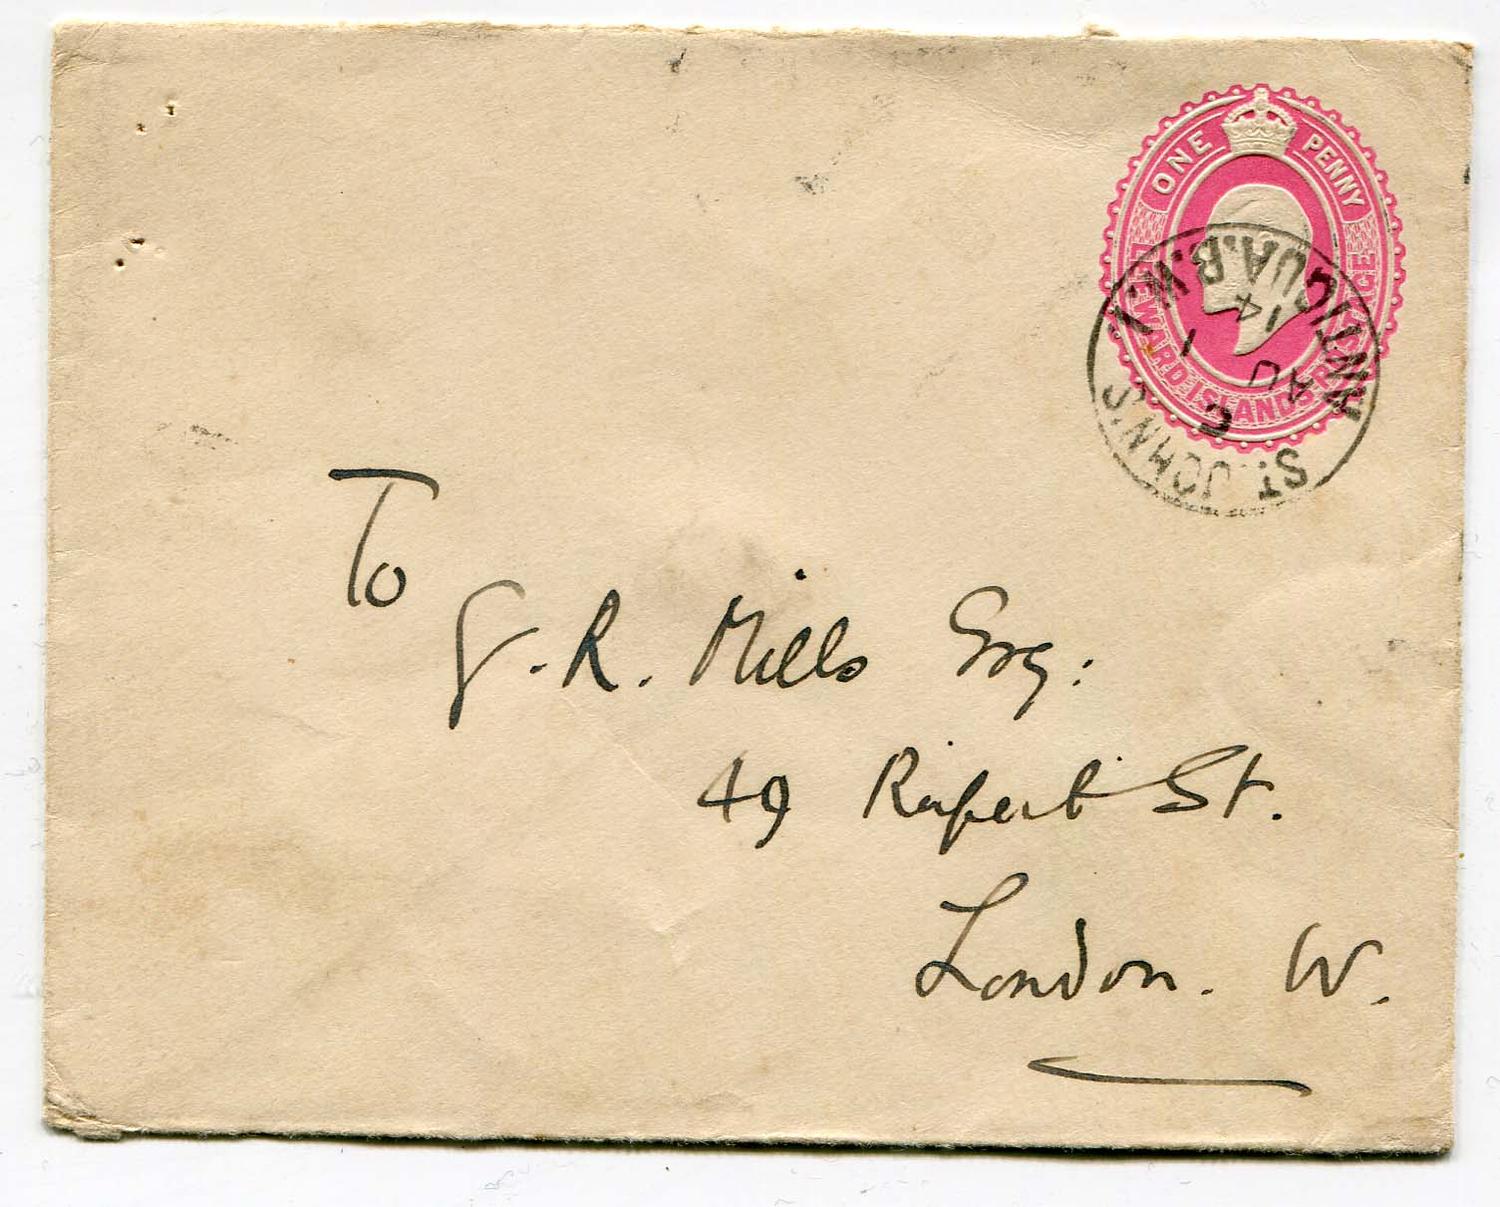 ONE PENNY
LEEWARD ISLANDS POSTAGE
ST. JOHN'S
ANTIGUA. B. W. I.
C
AU 1
14
To
G. R. Mills Esq:
49 Rupert St.
London. W.